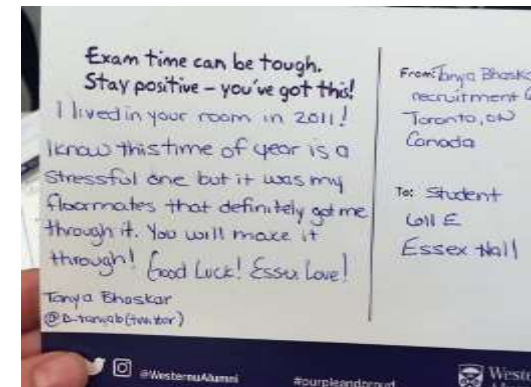 Exam time can be tough.
Stay positive – you've got this!
I lived in your room in 2011!
I know this time of year is a
stressful one but it was my
floormates that definitely got me
through it. You will make it
through! Good Luck! Essex Love!
Tanya Bhaskar
(twitter)
From: Tanya
recruitment
Toronto, ON
Canada
To: Student
E
Essex Hall
@WesternuAlumni
#purpleandproud